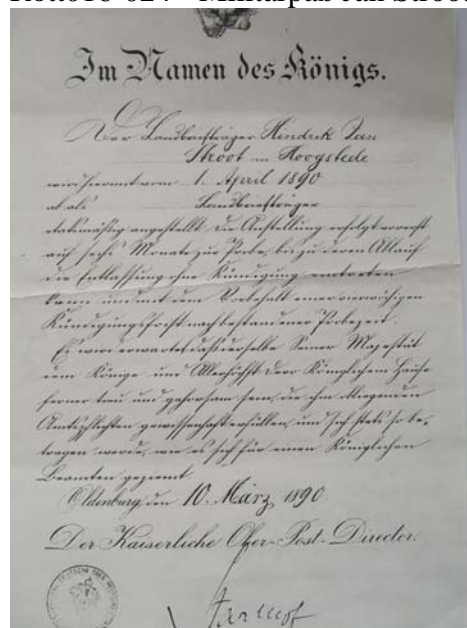 Im Namen des Königs.
Der Landbriefträger Hindrik Jan
Stroot in Hoogstede
wird hiermit vom 1. April 1890
ab als Landbriefträger
etatsmäßig angestellt. Die Anstellung erfolgt vorerst
auf sechs Monate zur Probe, bis zu deren Ablauf
die Entlassung ohne Kündigung eintreten
kann und mit dem Vorbehalt einer vierwöchigen
Kündigungsfrist nach bestandener Probezeit.
Es wird erwartet, daß derselbe Seiner Majestät
dem Könige und Allerhöchst Dero Königlichem Hause
ferner treu und gehorsam sein, die ihm obliegenden
Amtspflichten gewissenhaft erfüllen, und sich stets so be-
tragen werde, wie es sich für einen Königlichen
Beamten geziemt
Oldenburg, den 10. März 1890.
Der Kaiserliche Ober-Post-Director.